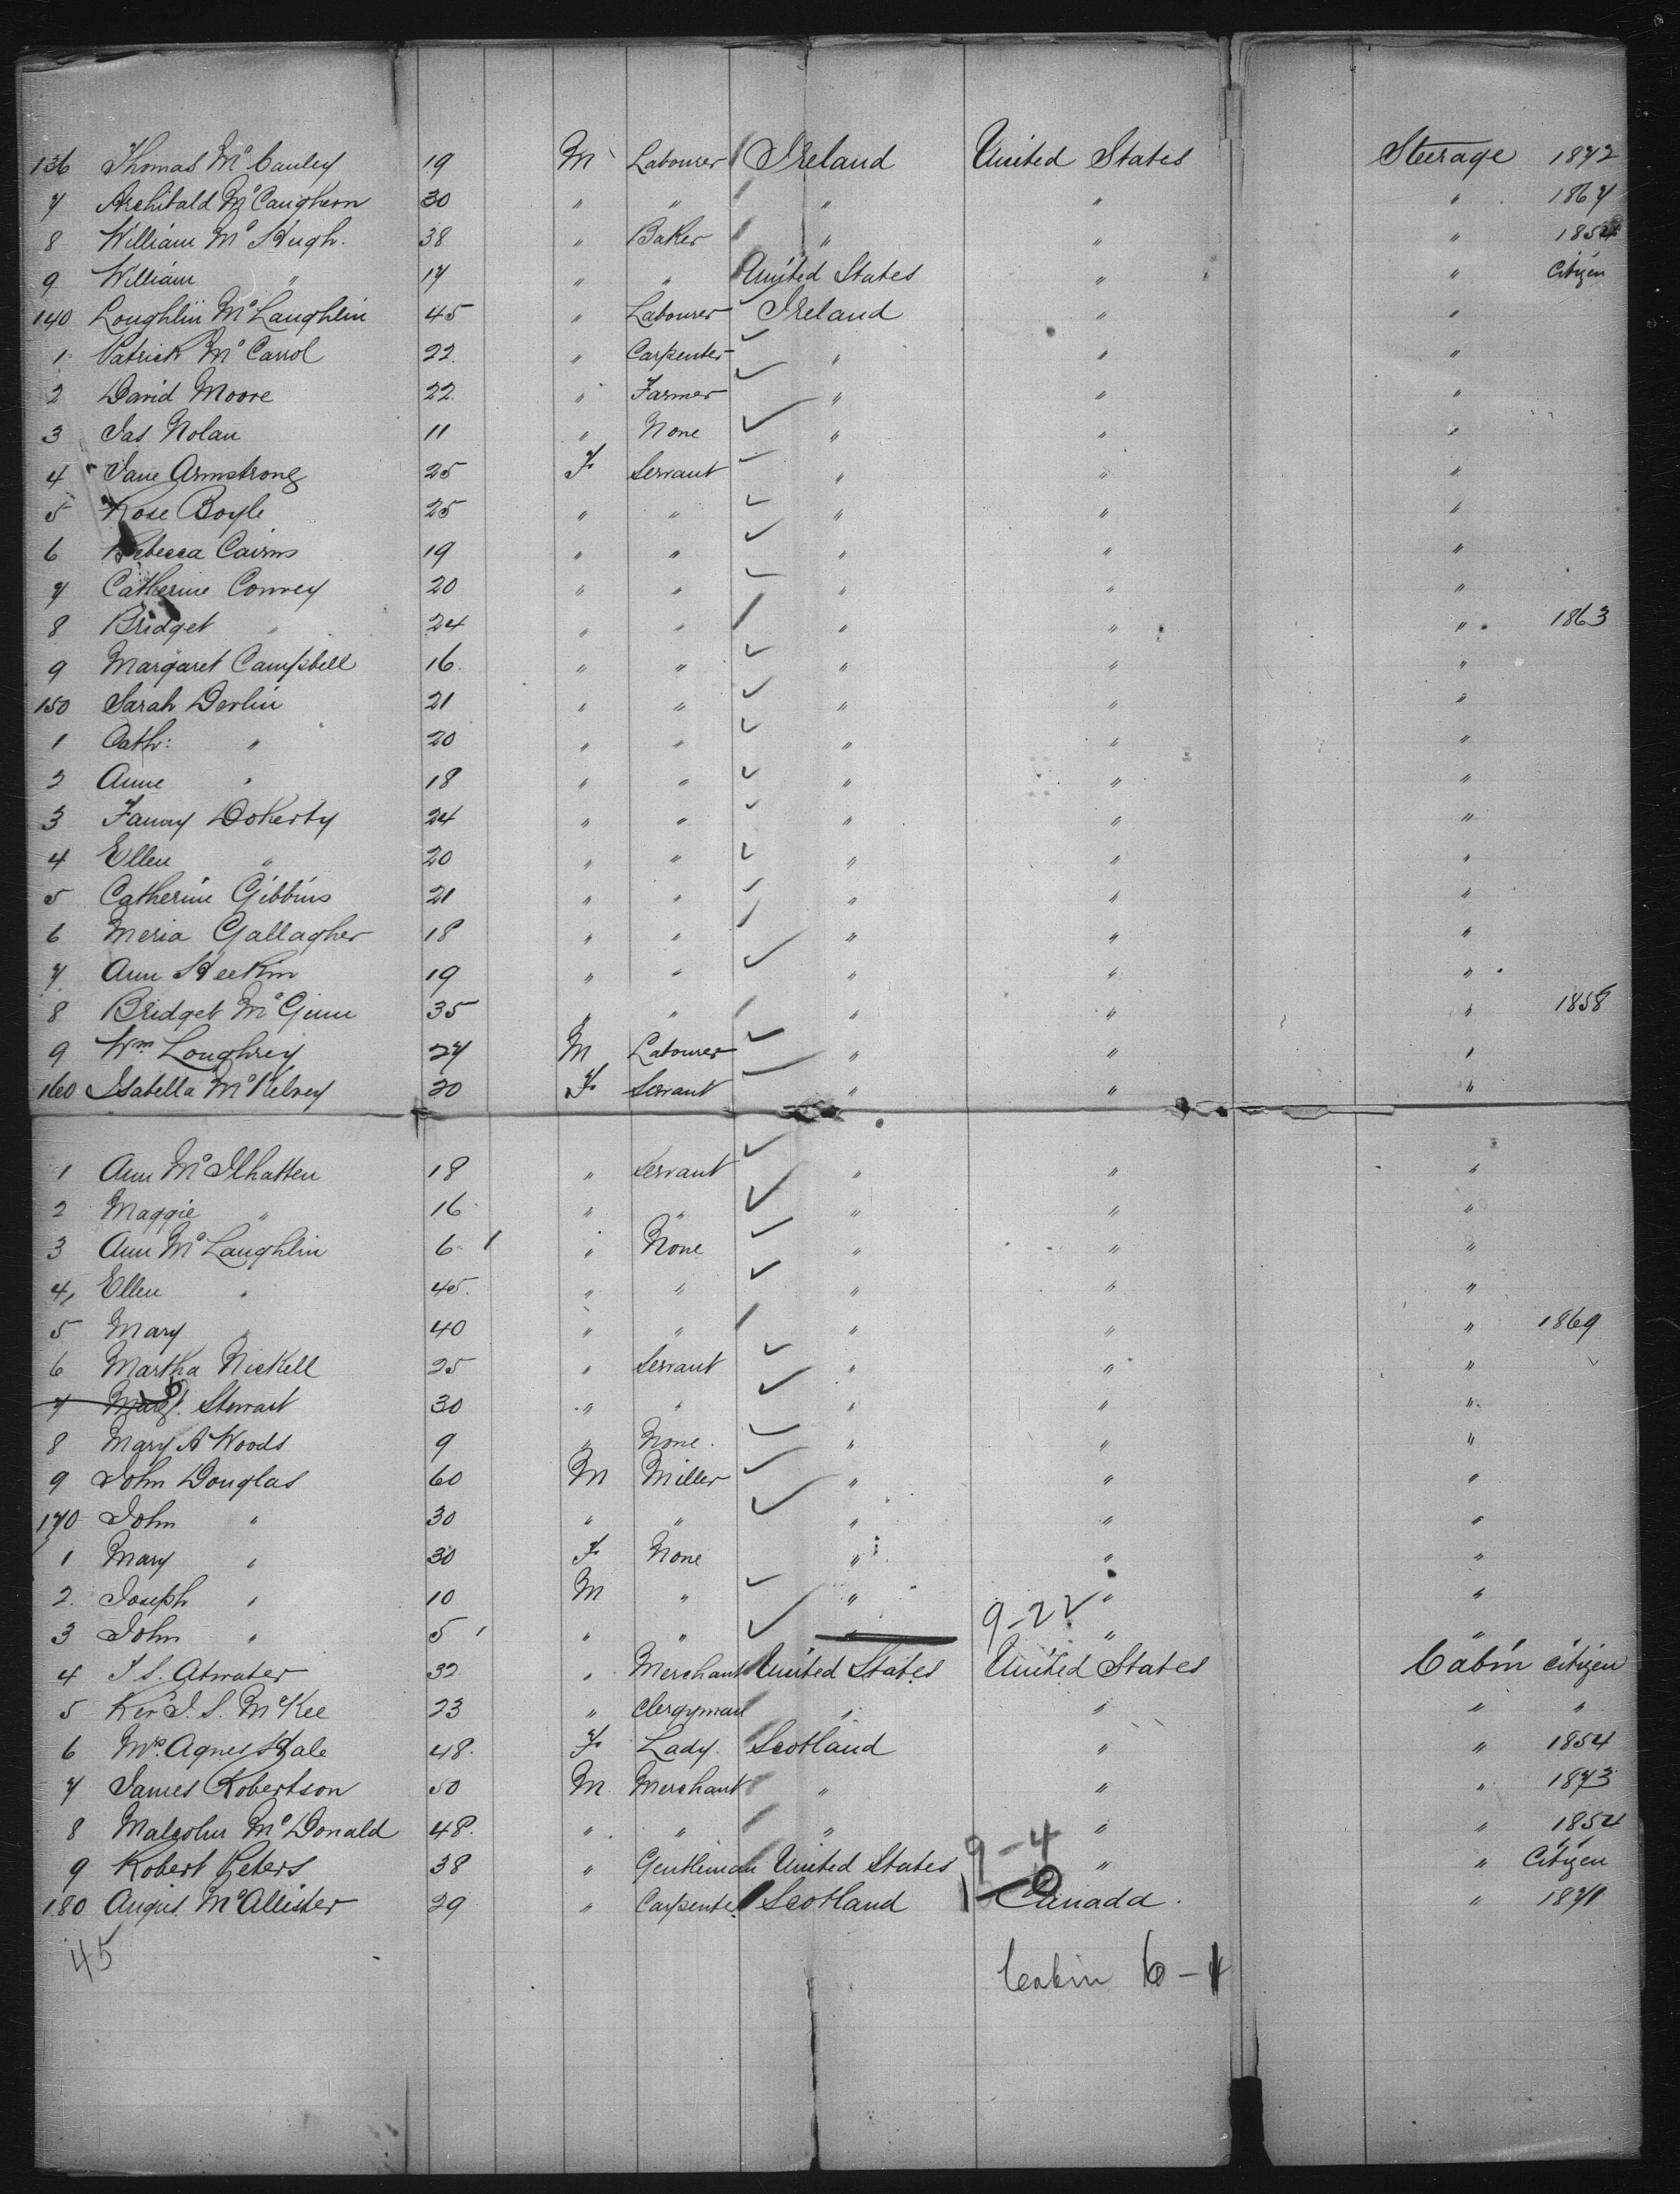 136 Thomas McCauley 19 M Labourer Ireland United States Steerage 1872
7 Archibald McCaughern 30 " " " " " 1867
8 William McHugh. 38 " Baker " " " 1854
9 William " 17 " " United States " " Citizen
140 Loughlin McLaughlin 45 " Labourer Ireland " "
1 Patrick McCarrol 22. " Carpenter " " "
2 David Moore 22. " Farmer " " "
3 Jas Nolan 11 " None " " "
4 Jane Armstrong 25 F Servant " " "
5 Rose Boyle 25 " " " " "
6 Rebecca Cairns 19 " " " " "
7 Catherine Convey 20 " " " " "
8 Bridget " 24 " " " " " 1863
9 Margaret Campbell 16. " " " " "
150 Sarah Devlin 21 " " " " "
1 Cath: " 20 " " " " "
2 Anne " 18 " " " " "
3 Fanny Doherty 24 " " " " "
4 Ellen " 20 " " " " "
5 Catherine Gibbins 21 " " " " "
6 Meria Gallagher 18 " " " " "
7 Ann Heekin 19 " " " " "
8 Bridget McGinn 35 " " " " " 1858
9 Wm Loughrey 27 M Labourer " " "
160 Isabella McKelvey 20 F Servant " " "
1 Ann McIlhatten 18 " Servant " " "
2 Maggie " 16 " " " " "
3 Ann McLaughlin 6 " None " " "
4 Ellen " 45. " " " " "
5 Mary " 40 " " " " " 1869
6 Martha Nickell 25 " Servant " " "
7 Margt. Stewart 30 " " " " "
8 Mary A Woods 9 " None. " " "
9 John Douglas 60 M Miller " " "
170 John " 30 " " " " "
1 Mary " 30 F None " " "
2. Joseph " 10 M " " " "
3 John " 5 " " " 9-22 " "
4 J S. Atwater 32 " Merchant United States United States Cabin Citizen
5 Rev J. S. McKee 23 " Clergyman " " " "
6 Mrs. Agnes Hale 48. F Lady. Scotland " " 1854
7 James Robertson 50 M Merchant " " " 1873
8 Malcolm McDonald 48. " " " " " 1854
9 Robert Peters 38 " Gentleman United States 9-4 " " Citizen
180 Angus McAllister 29 " Carpenter Scotland Canada. " 1871
45
Cabin 6-1